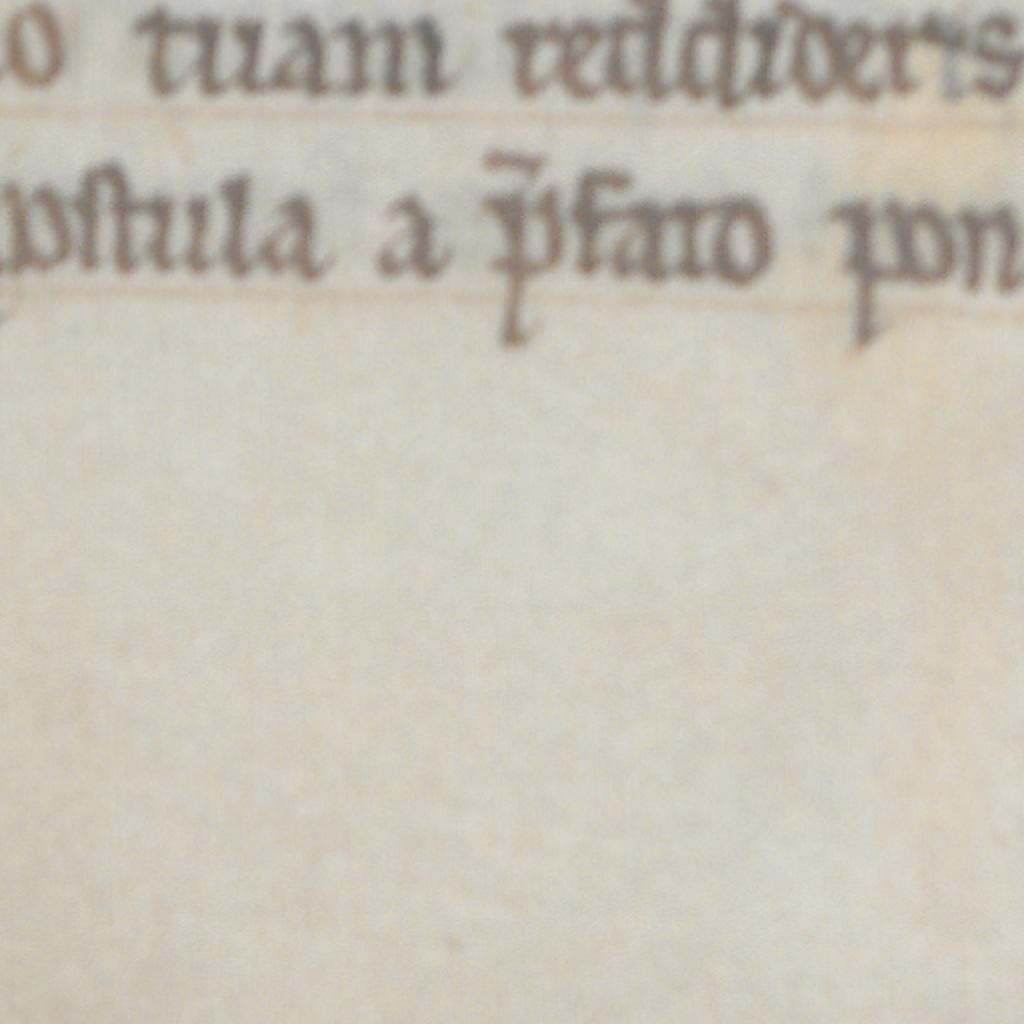 o tuam reddideris
postula a p̄fato pon